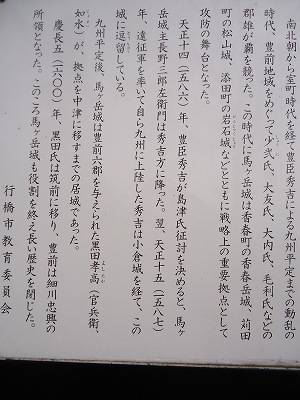 南北朝から室町時代を経て豊臣秀吉による九州平定までの動乱の
時代、豊前地域をめぐって少弐氏、大友氏、大内氏、毛利氏などの
群雄が覇を競った。この時代に馬ヶ岳城は香春町の香春岳城、苅田
町の松山城、添田町の岩石城などとともに戦略上の重要拠点として
攻防の舞台となった。
天正十四（一五八六）年、豊臣秀吉が島津氏征討を決めると、馬ヶ
岳城主長野三郎左衛門は秀吉方に降った。翌、天正十五（一五八七）
年、遠征軍を率いて自ら九州に上陸した秀吉は小倉城を経て、この
城に逗留している。
九州平定後、馬ヶ岳城は豊前六郡を与えられた黒田孝高（官兵衛、
如水）が、拠点を中津に移すまでの居城であった。
慶長五（一六〇〇）年、黒田氏は筑前に移り、豊前は細川忠興の
所領となった。このころ馬ヶ岳城も役割を終え長い歴史を閉じた。
行橋市教育委員会